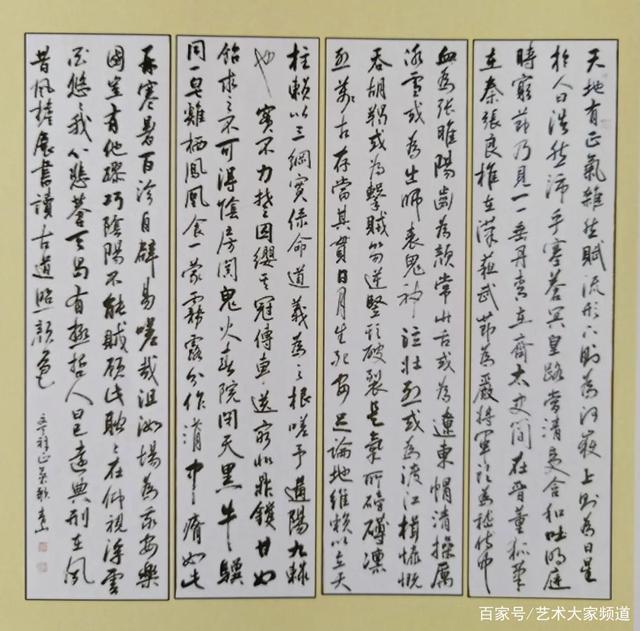 天地有正氣雜然賦流形下則為河嶽上則為日星
於人曰浩然沛乎塞蒼冥皇路當清夷含和吐明庭
時窮節乃見一一垂丹青在齊太史簡在晉董狐筆
在秦張良椎在漢蘇武節為嚴將軍頭為嵇侍中
血為張睢陽齒為顏常山舌或為遼東帽清操厲
冰雪或為出師表鬼神泣壯烈或為渡江楫慷慨
吞胡羯或為擊賊笏逆豎頭破裂是氣所磅礴凜
烈萬古存當其貫日月生死安足論地維賴以立天
柱賴以三綱實係命道義為之根嗟予遘陽九隸
也實不力楚囚纓其冠傳車送窮北鼎鑊甘如
飴求之不可得陰房闃鬼火春院閟天黑牛驥
同一皂雞棲鳳凰食一蒙霧露分作溝中瘠如此
再寒暑百沴自辟易嗟哉沮洳場為我安樂
國豈有他繆巧陰陽不能賊顧此耿耿在仰視浮雲
白悠悠我心悲蒼天曷有極哲人日已遠典刑在夙
昔風檐展書讀古道照顏色
正氣歌
百家号/艺术大家频道